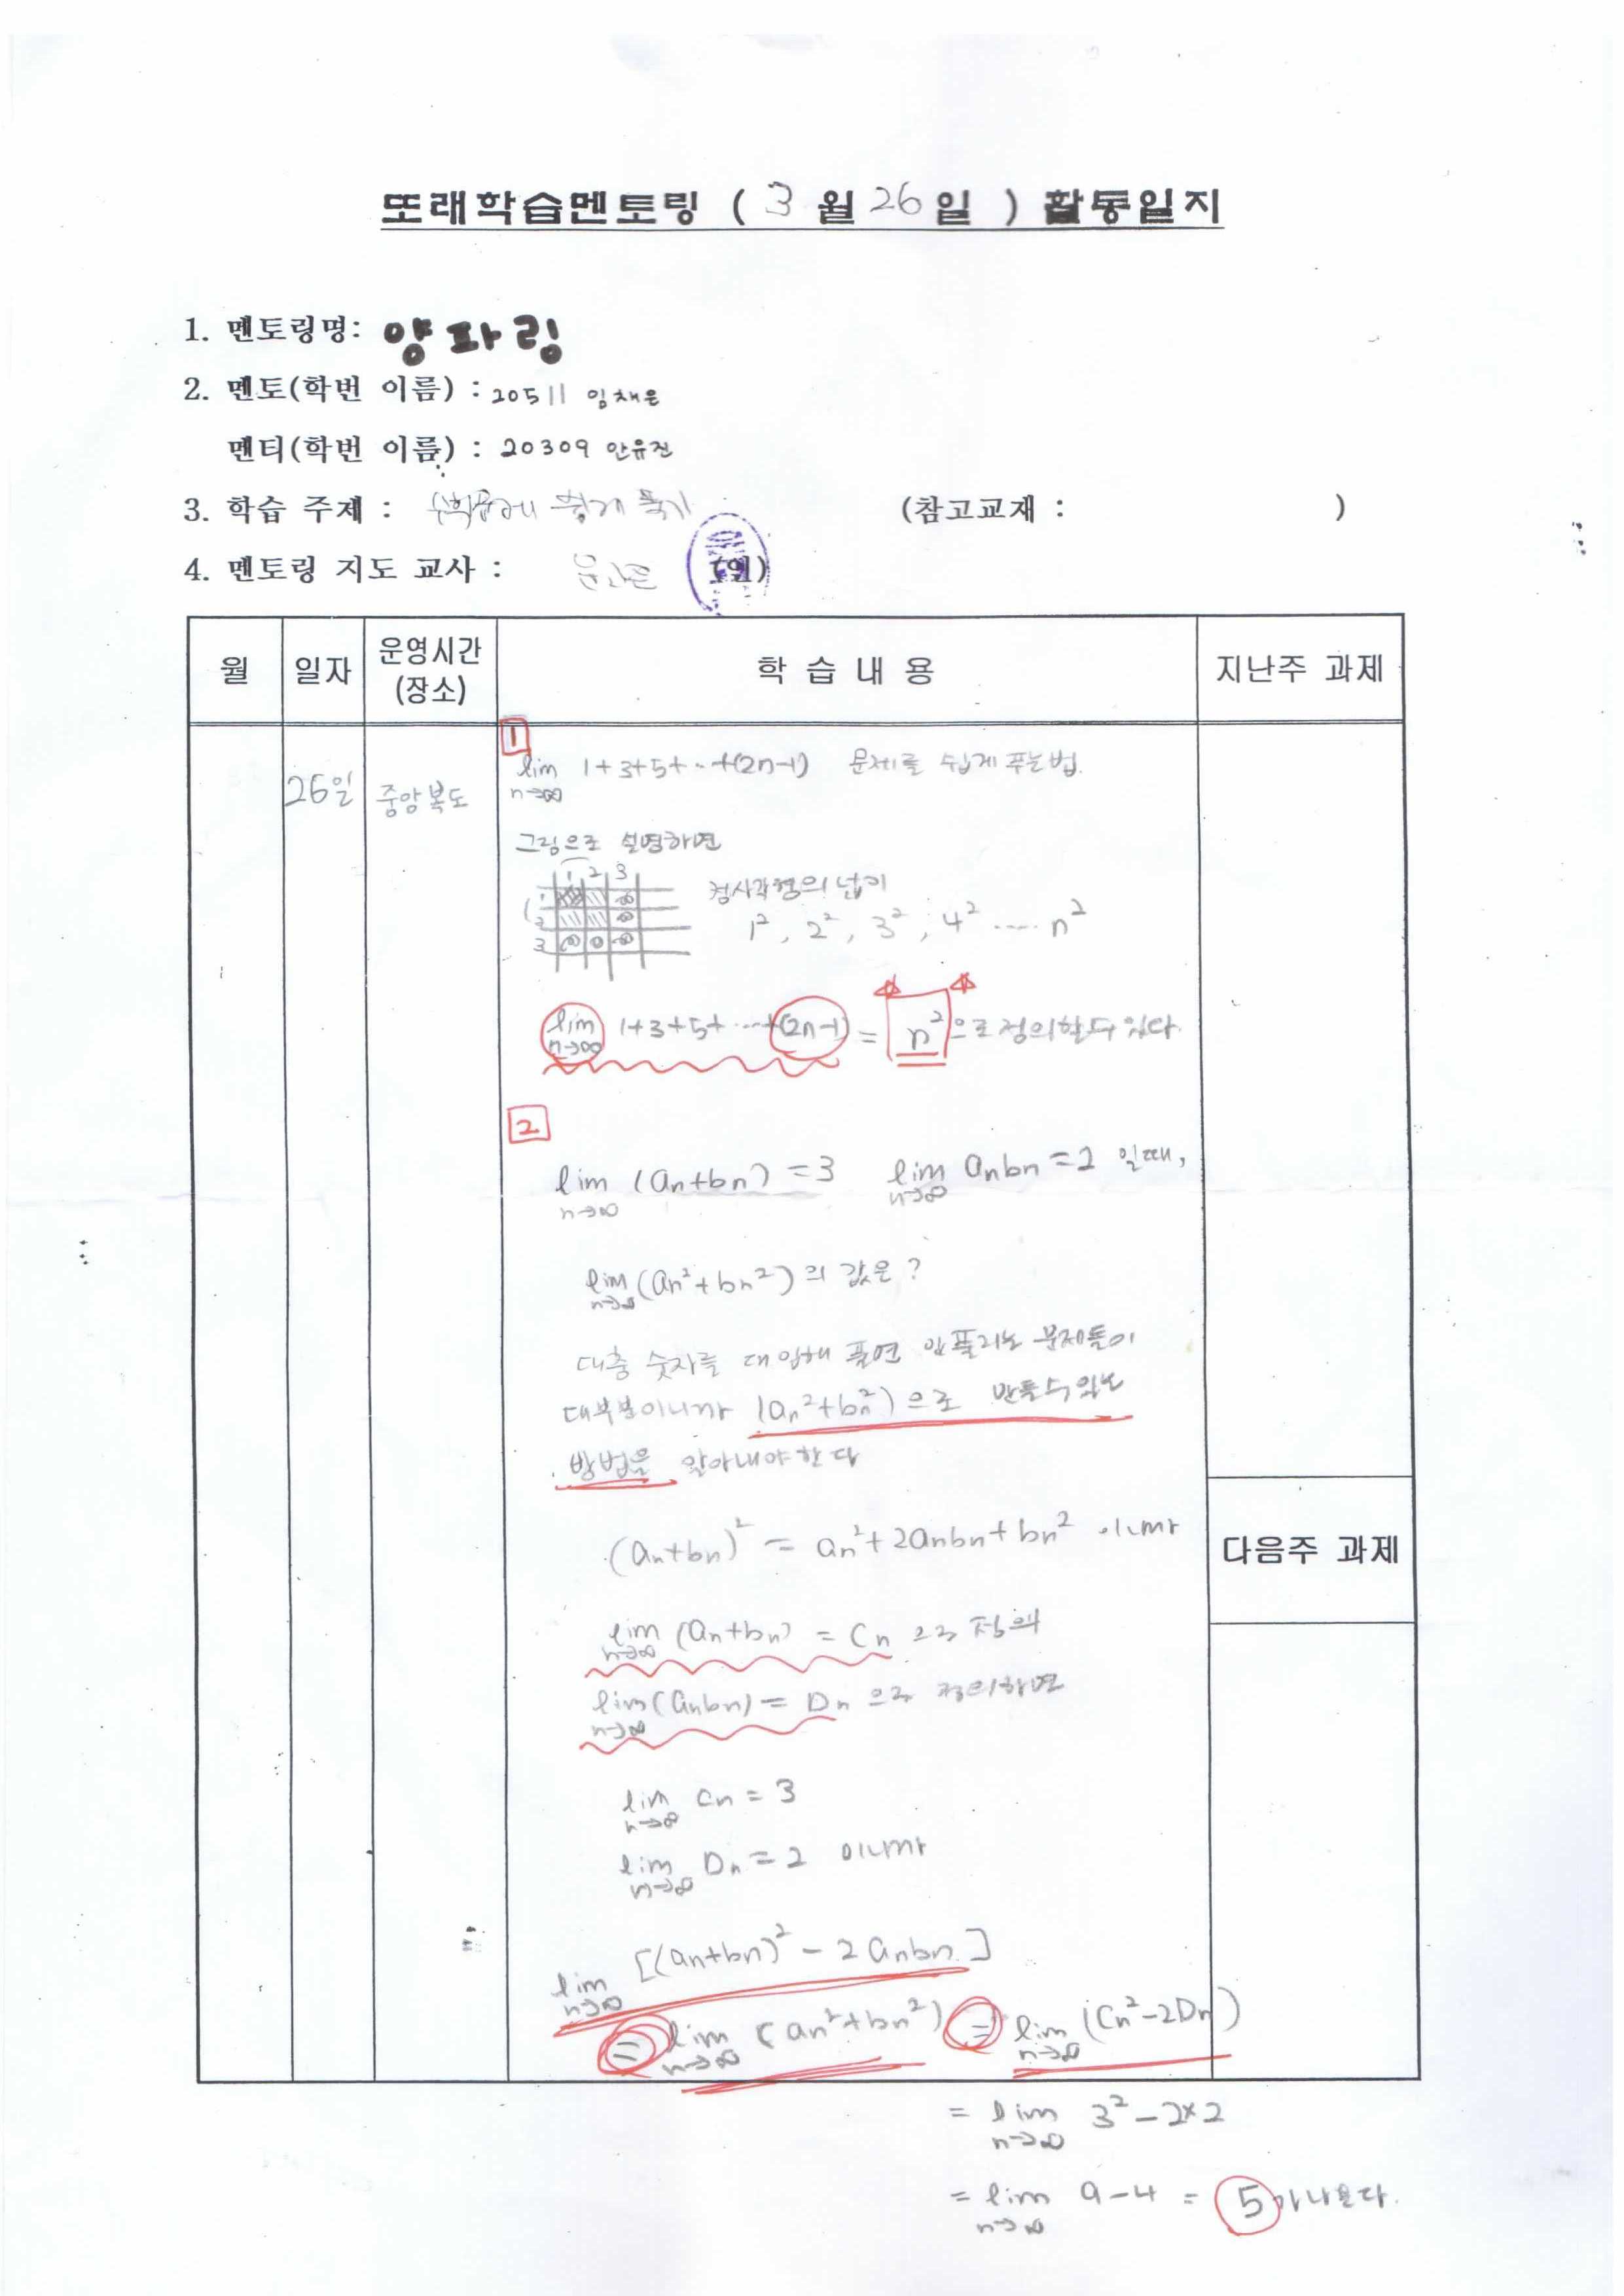 또래학습멘토링 ( 3 월 26 일 ) 활동일지
1. 멘토링명: 양파링
2. 멘토(학번 이름) : 20511 임채은
멘티(학번 이름) : 20309 안유진
3. 학습 주제 : 수학문제 쉽게 풀기 (참고교재 : )
4. 멘토링 지도 교사 : (인)
월 일자 운영시간 (장소) 학 습 내 용 지난주 과제
26일 중앙복도
1
lim n→∞ 1+3+5+…+(2n-1) 문제를 쉽게 푸는법.
그림으로 설명하면
1 2 3
1
2
3
정사각형의 넓이
1², 2², 3², 4² …… n²
lim n→∞ 1+3+5+…+(2n-1) = n² 으로 정의할수 있다.
2
lim n→∞ (an+bn) = 3 lim n→∞ anbn = 2 일때,
lim n→∞ (an²+bn²)의 값은?
대충 숫자를 대입해 풀면 안풀리는 문제들이
대부분이니까 (an²+bn²)으로 만들수 있는
방법을 알아내야한다
(an+bn)² = an²+2anbn+bn² 이니까
다음주 과제
lim n→∞ (an+bn) = Cn 으로 정의
lim n→∞ (anbn) = Dn 으로 정의하면
lim n→∞ Cn = 3
lim n→∞ Dn = 2 이니까
lim n→∞ [(an+bn)² - 2anbn]
= lim n→∞ (an²+bn²) = lim n→∞ (Cn²-2Dn)
= lim n→∞ 3²-2×2
= lim n→∞ 9-4 = 5 가 나온다.